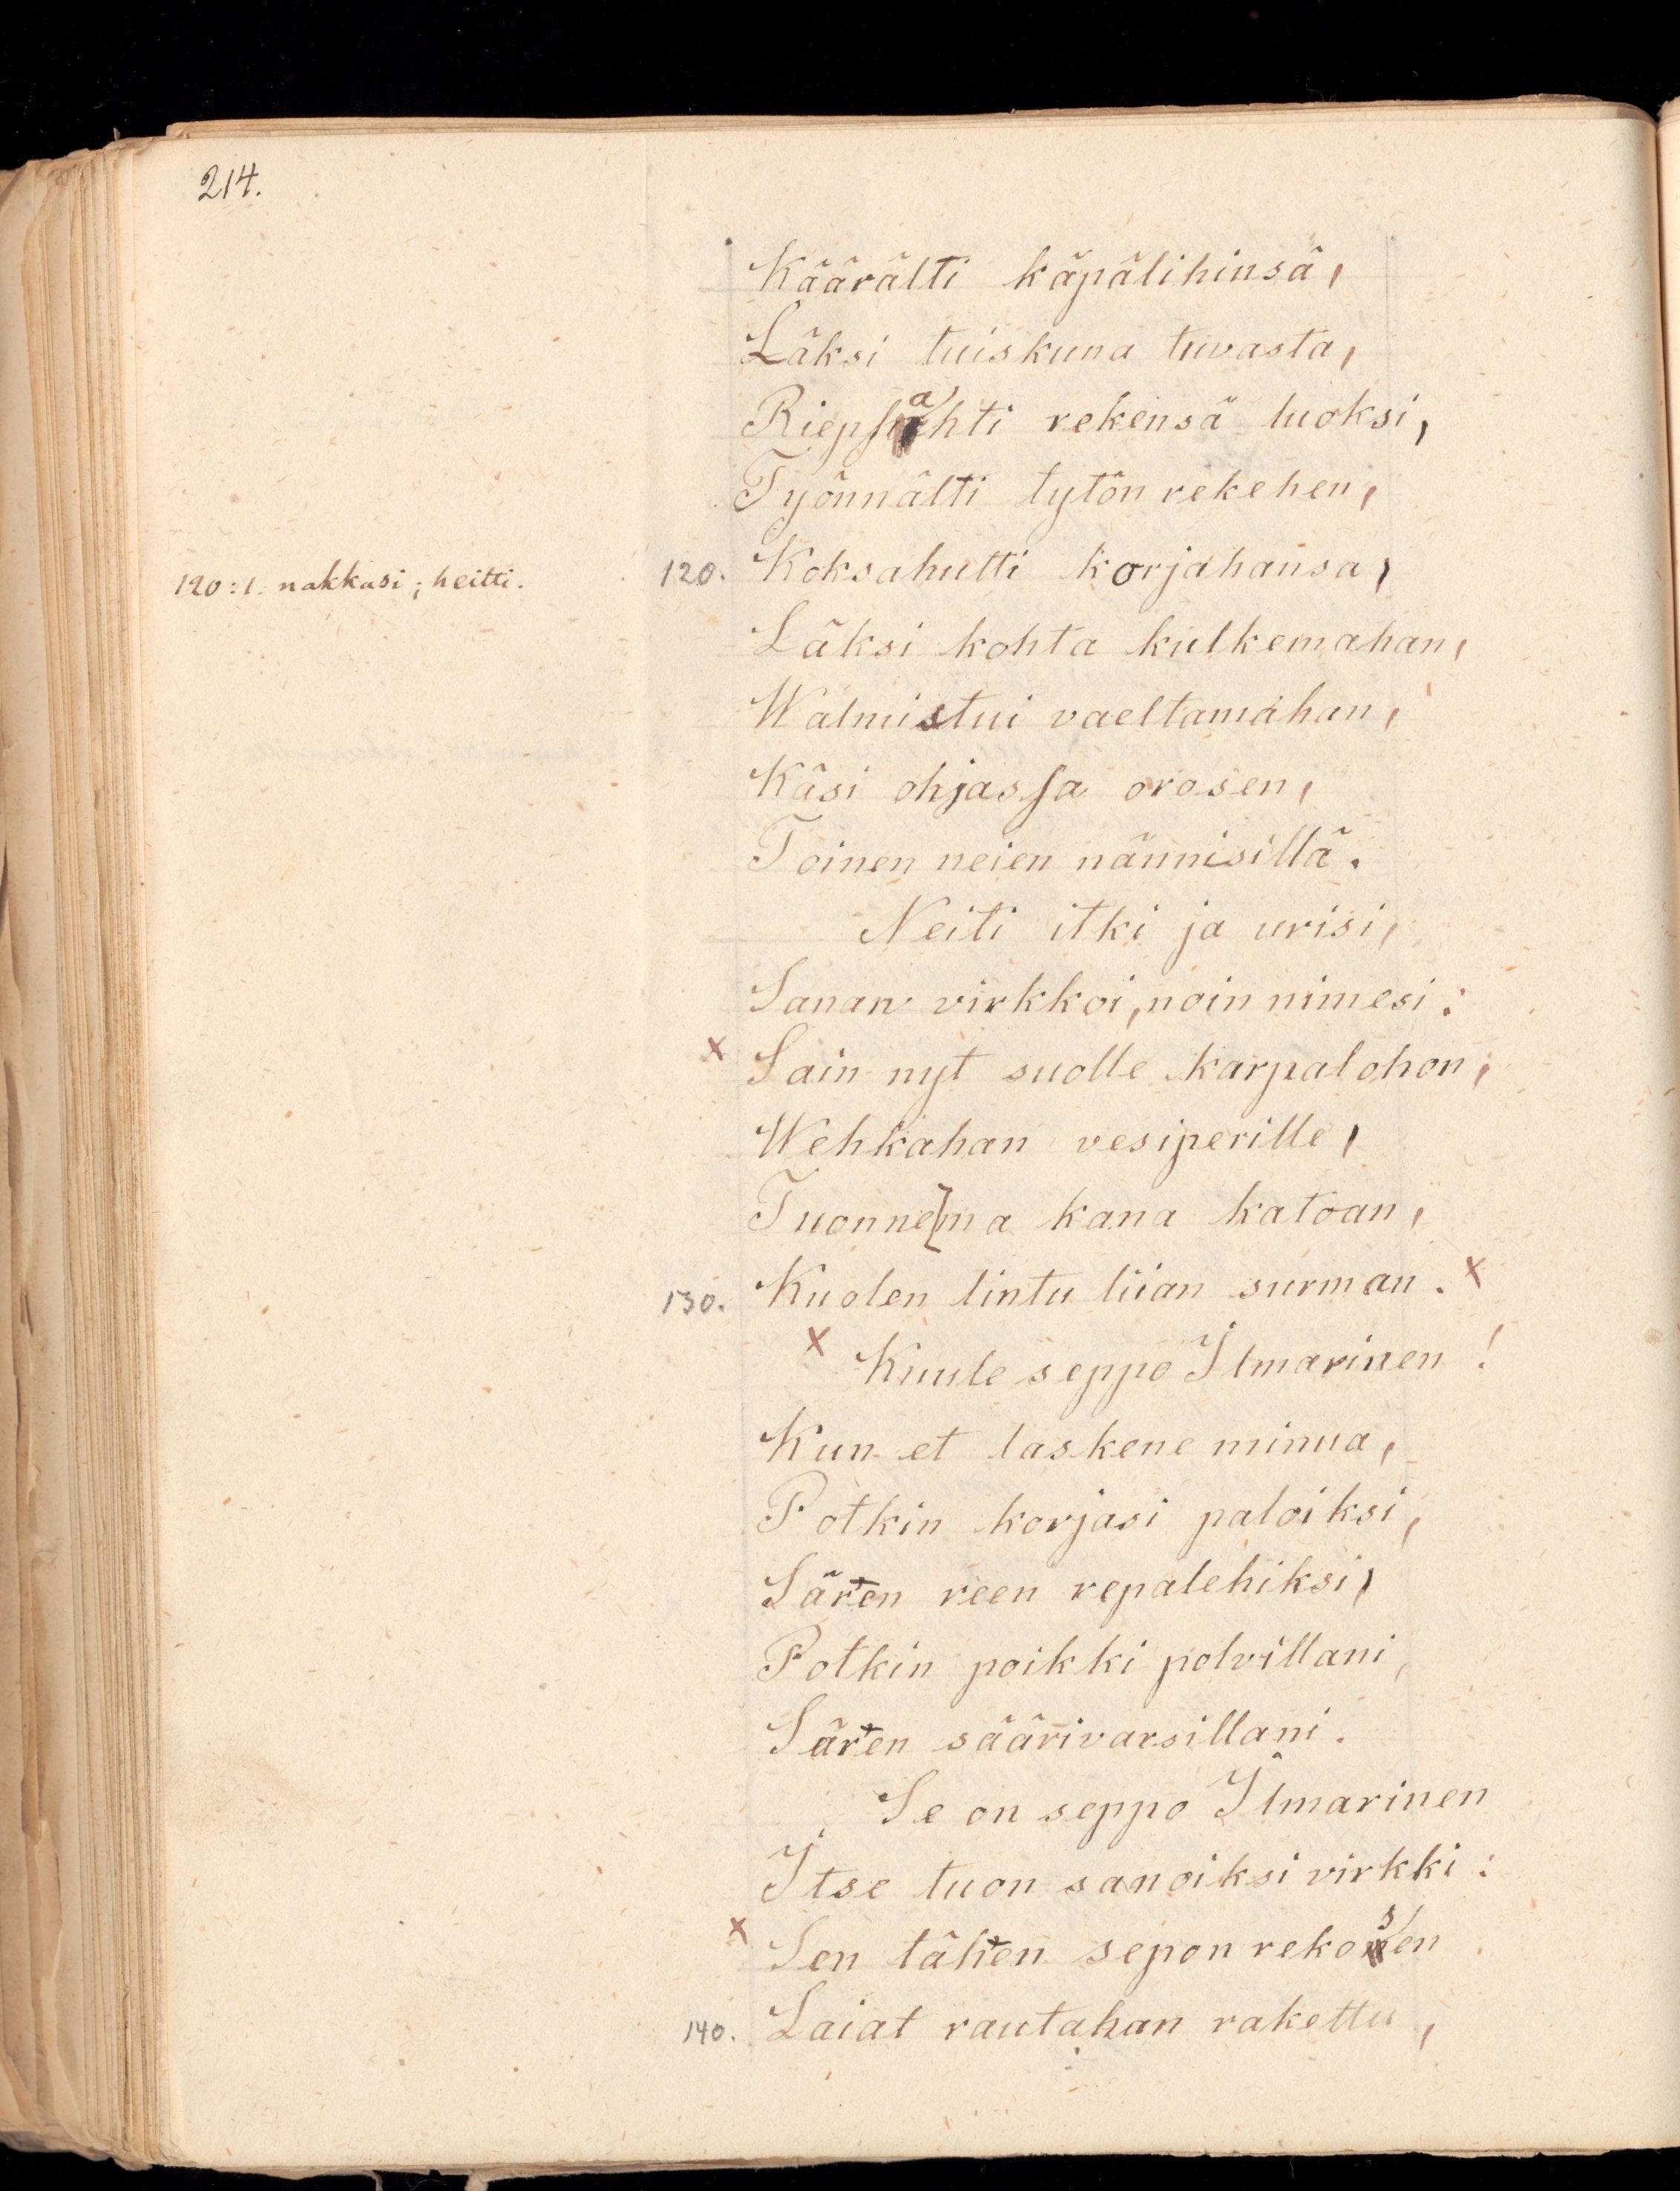 214.
Käärälti käpälihinsä,
Läksi tuiskuna tuvasta,
Riepsahti rekensä luoksi,
Työnnälti tytön rekehen,
120:1. nakkasi; heitti.
120. Koksahutti korjahansa,
Läksi kohta kulkemahan,
Walmistui vaeltamahan,
Käsi ohjassa orosen,
Toinen neien nännisillä.
Neiti itki ja urisi,
Sanan virkkoi, noin nimesi:
x Sain nyt suolle karpalohon,
Wehkahan vesiperille,
Tuonne[ma kana katoan,
130. Kuolen lintu liian surman. x
x Kuule seppo Ilmarinen!
Kun et laskene minua,
Potkin korjasi paloiksi,
Sären reen repalehiksi,
Potkin poikki polvillani,
Sären säärivarsillani.
Se on seppo Ilmarinen
Itse tuon sanoiksi virkki:
x Sen tähen sepon rekosen
140. Laiat rautahan rakettu,